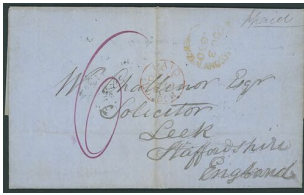 Paid
PAID
W. Challinor Esqr
Solicitor
Leek
Staffordshire
England